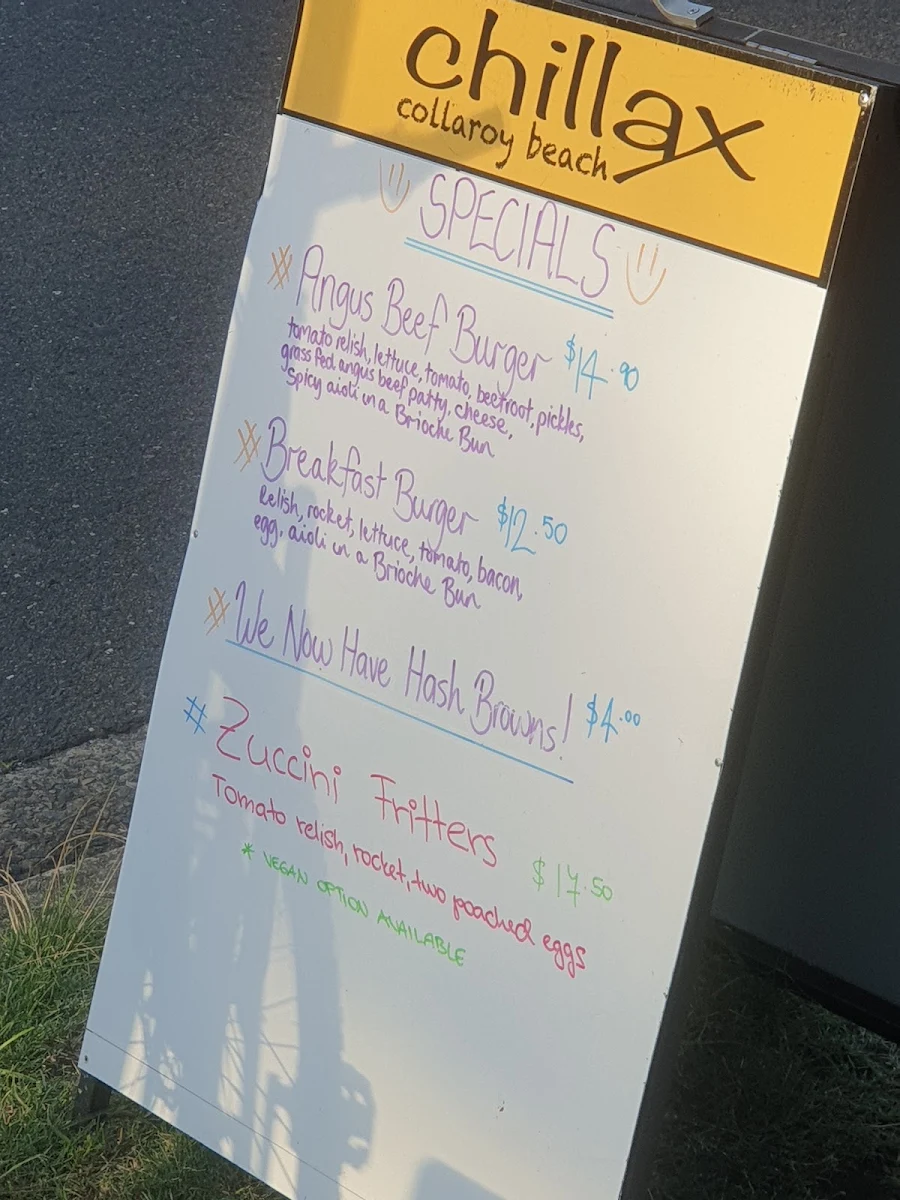 chillax
collaroy beach
SPECIALS
# Angus Beef Burger $14.90
tomato relish, lettuce, tomato, beetroot, pickles,
grass fed angus beef patty, cheese,
Spicy aioli in a Brioche Bun
# Breakfast Burger $12.50
Relish, rocket, lettuce, tomato, bacon,
egg, aioli in a Brioche Bun
# We Now Have Hash Browns! $4.00
# Zuccini Fritters $17.50
Tomato relish, rocket, two poached eggs
* VEGAN OPTION AVAILABLE